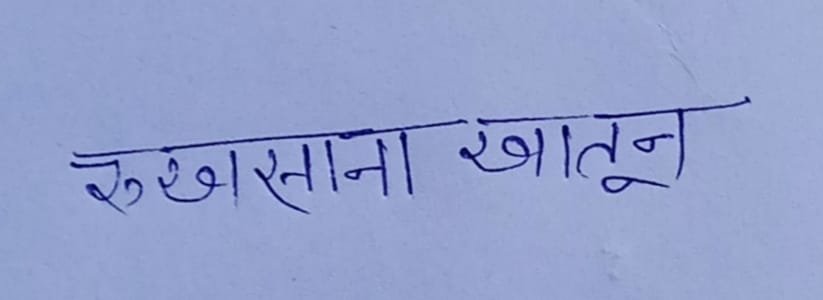 रुखसाना खातून